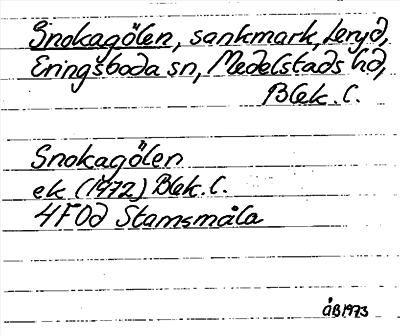 Snokagölen, sankmark, Leryd,
Eringsboda sn, Medelstads hd,
Blek. l.
Snokagölen
ek (1972) Blek. l.
4F0d Stamsmåla
ÅB1973